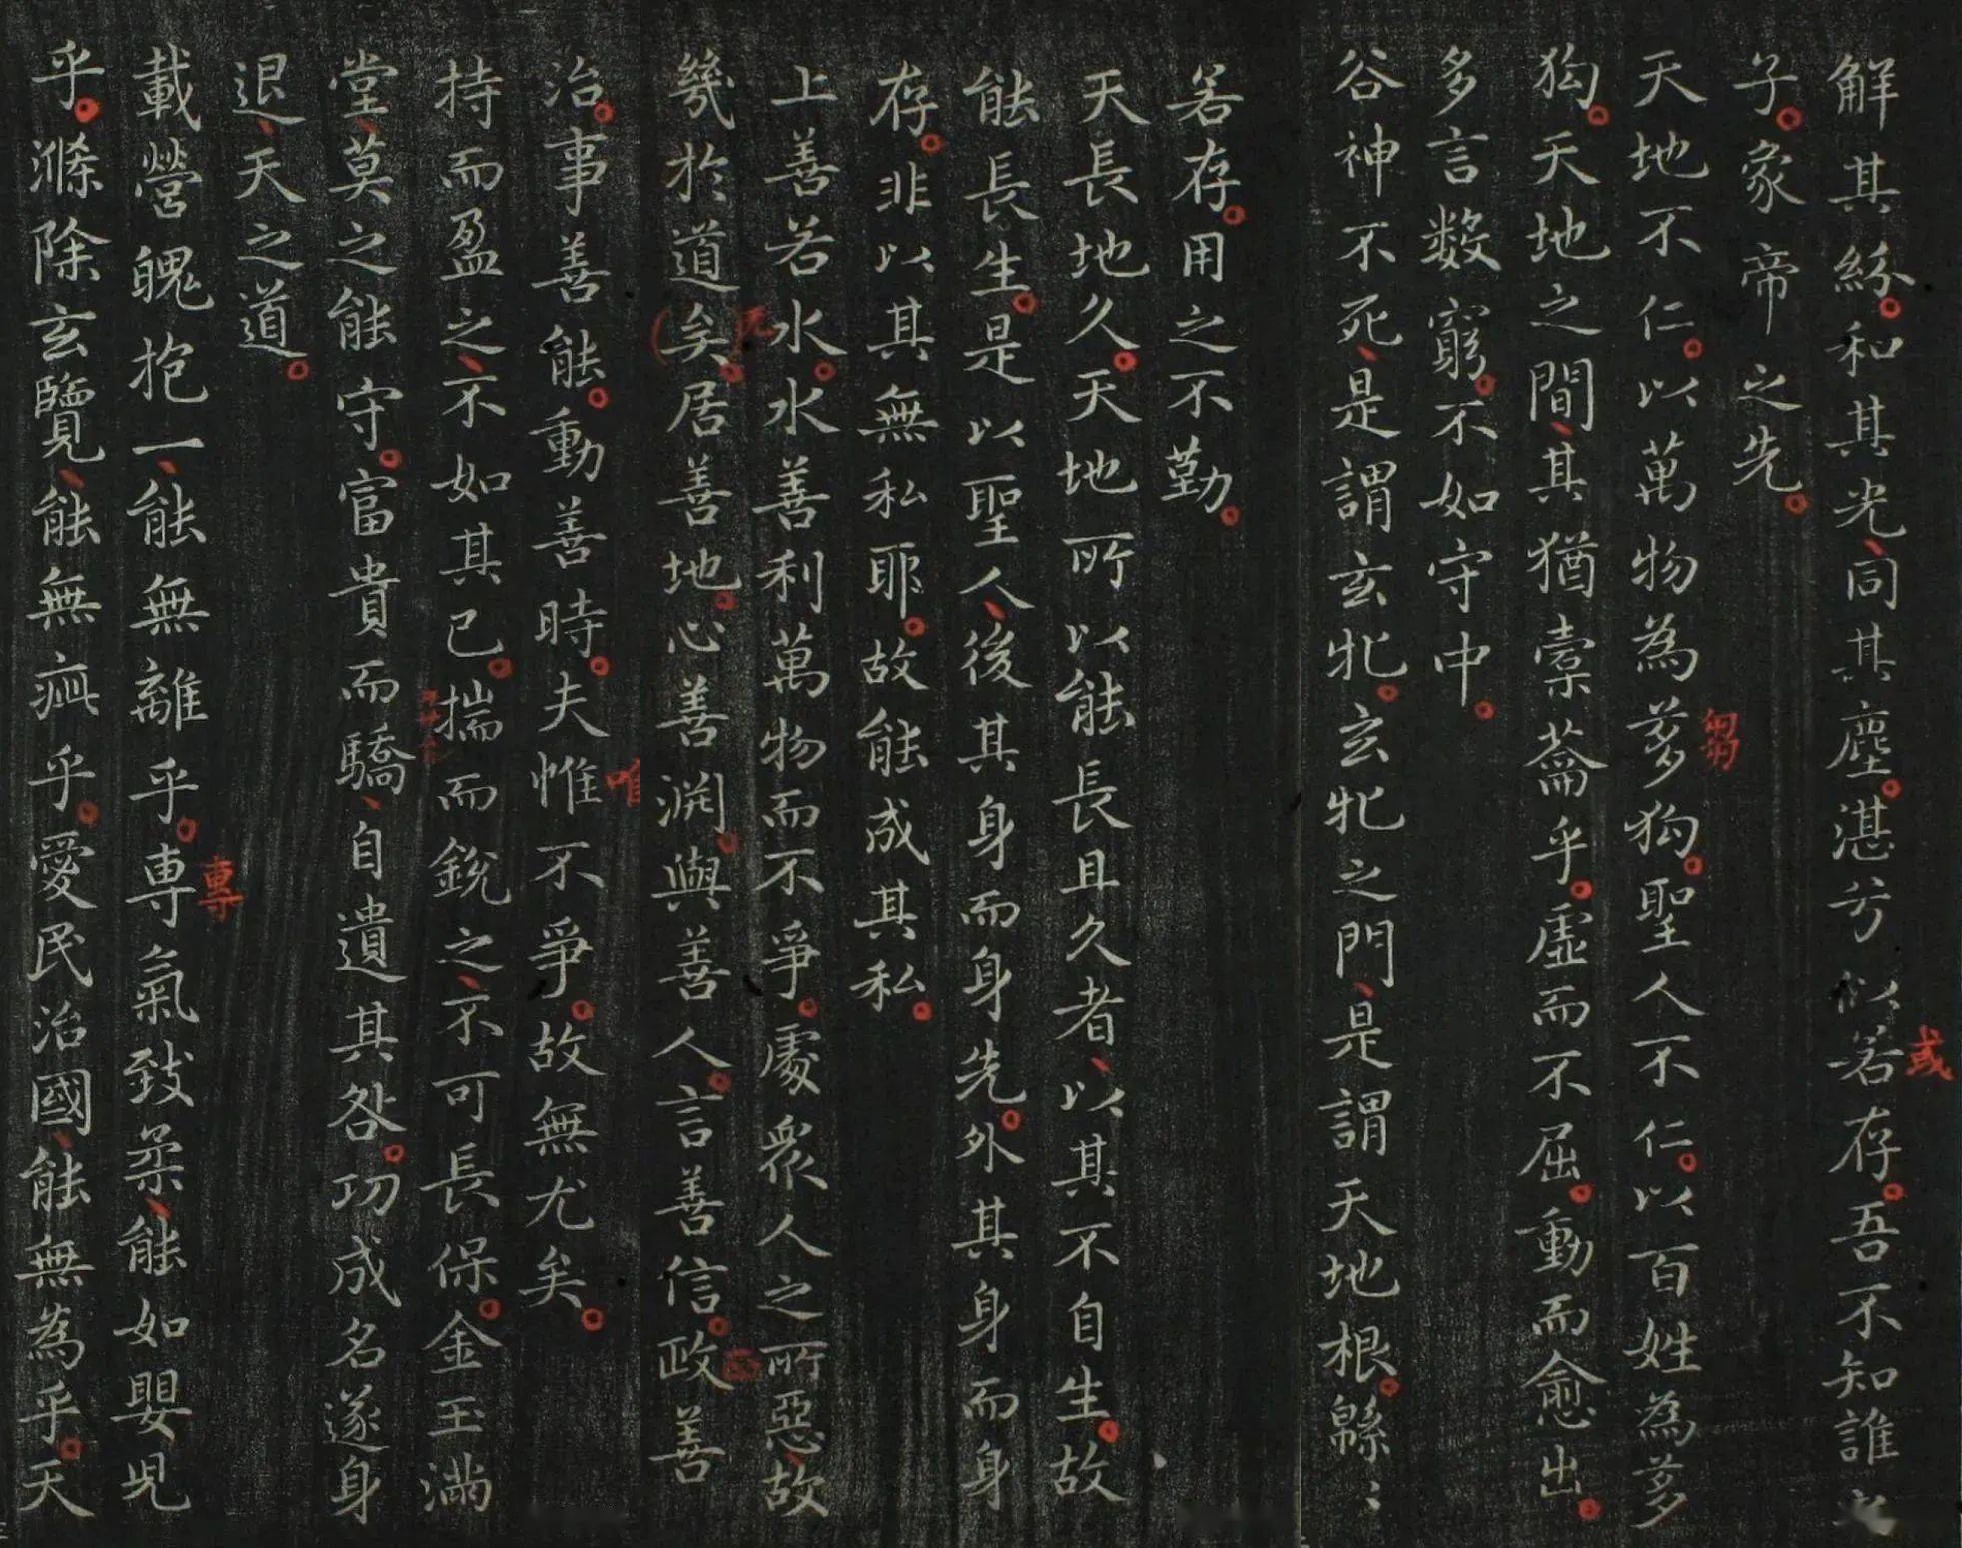 解其紛。和其光、同其塵。湛兮似若存。吾不知誰
或
子。象帝之先。
芻
天地不仁。以萬物為芻狗。聖人不仁。以百姓為芻
狗。天地之間、其猶橐籥乎。虛而不屈。動而愈出。
多言數窮。不如守中。
谷神不死、是謂玄牝。玄牝之門、是謂天地根。緜〻
若存。用之不勤。
天長地久。天地所以能長且久者、以其不自生。故
能長生。是以聖人、後其身而身先。外其身而身
存。非以其無私耶。故能成其私。
上善若水。水善利萬物而不爭。處眾人之所惡、故
幾於道矣。居善地。心善淵。與善人。言善信。政善
唯
治。事善能。動善時。夫惟不爭。故無尤矣。
持而盈之、不如其已。揣而銳之、不可長保。金玉滿
堂、莫之能守。富貴而驕、自遺其咎。功成名遂身
退、天之道。
專
載營魄抱一、能無離乎。專氣致柔、能如嬰兒
乎。滌除玄覽、能無疵乎。愛民治國、能無為乎。天